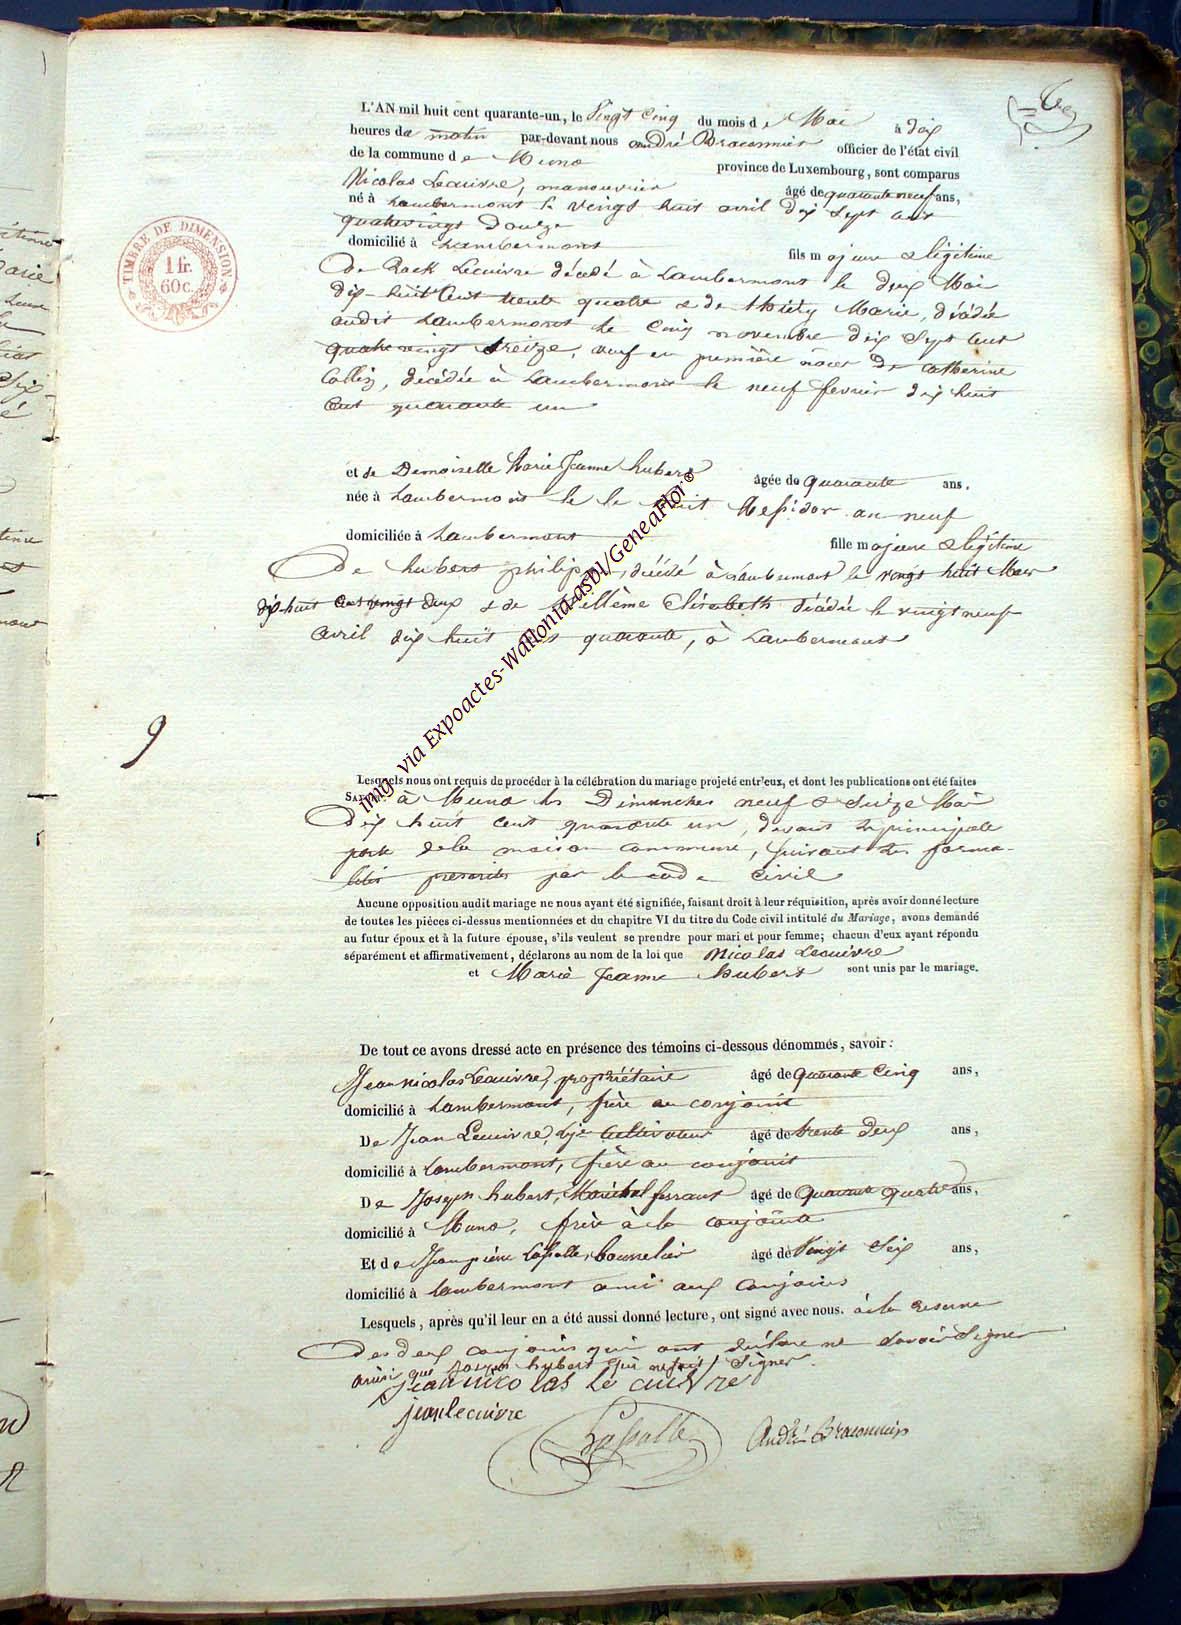 TIMBRE DE DIMENSION
1 fr.
60 c.
9
L'AN mil huit cent quarante-un, le Vingt Cinq du mois de Mai à dix
heures de matin par-devant nous André Braconnier officier de l'état civil
de la commune de Muno province de Luxembourg, sont comparus
Nicolas Lecuivre, manouvrier âgé de quarante neuf ans,
né à Lambermont le vingt huit avril dix sept cent
quatrevingt douze
domicilié à Lambermont fils majeure & légitime
De Lecuivre décédé à Lambermont le deux Mai
dix-huit Cent trente quatre & de Thiéry Marie, décédée
audit Lambermont le Cinq novembre dix sept cent
quatre vingt treize, veuf en première noces De Catherine
Collin, décédée à Lambermont le neuf fevrier dix huit
cent quarante un
et de Demoiselle Marie Jeanne hubert âgée de quarante ans.
née à Lambermont le le huit Messidor an neuf
domiciliée à Lambermont fille majeure & légitime
De hubert philippe, décédé à Lambermont le vingt huit Mars
dix-huit Cent vingt deux & de Elisabeth décédée le vingt neuf
avril dix huit cent quarante, à Lambermont
Lesquels nous ont requis de procéder à la célébration du mariage projeté entr'eux, et dont les publications ont été faites
SAVOIR à Muno les Dimanches neuf & Seize Mai
Dix huit cent quarante un, devant la principale
porte de la maison commune, suivant les forma-
lités prescrites par le code civil
Aucune opposition audit mariage ne nous ayant été signifiée, faisant droit à leur réquisition, après avoir donné lecture
de toutes les pièces ci-dessus mentionnées et du chapitre VI du titre du Code civil intitulé du Mariage, avons demandé
au futur époux et à la future épouse, s'ils veulent se prendre pour mari et pour femme; chacun d'eux ayant répondu
séparément et affirmativement, déclarons au nom de la loi que Nicolas Lecuivre
et Marie Jeanne hubert sont unis par le mariage.
De tout ce avons dressé acte en présence des témoins ci-dessous dénommés, savoir :
Jean nicolas Lecuivre, propriétaire âgé de quarante Cinq ans,
domicilié à Lambermont, frère au conjoint
De Jean Lecuivre, cultivateur âgé de trente deux ans,
domicilié à Lambermont, frère au conjouit
De Joseph hubert, Maréchal ferrant âgé de Quarante quatre ans,
domicilié à Muno, frère à la conjointe
Et de Jean pierre Lassalle, bourrelier âgé de Vingt Six ans,
domicilié à Lambermont ami aux conjoins
Lesquels, après qu'il leur en a été aussi donné lecture, ont signé avec nous. à la reserve
Des deux conjoins qui ont déclaré ne savoir signer
ainsi que Joseph hubert qui ne sait signer.
jean nicolas le cuivre
jean lecuivre
Lassalle André Braconnier
img via Expoactes-Wallonia-asbl/GeneaFlor©